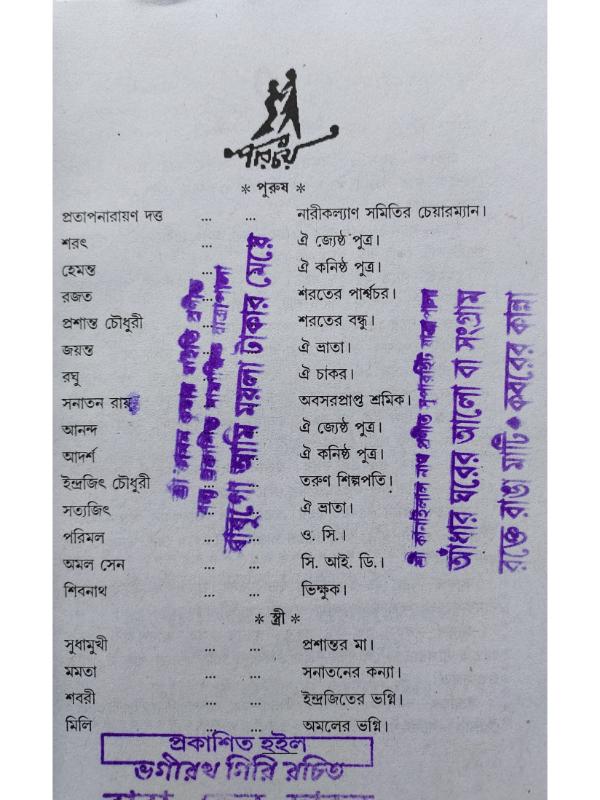 পরিচয়
* পুরুষ *
প্রতাপনারায়ণ দত্ত ... ... নারীকল্যাণ সমিতির চেয়ারম্যান।
শরৎ ... ঐ জ্যেষ্ঠ পুত্র।
হেমন্ত ... ঐ কনিষ্ঠ পুত্র।
রজত ... শরতের পার্শ্বচর।
প্রশান্ত চৌধুরী ... শরতের বন্ধু।
জয়ন্ত ... ঐ ভ্রাতা।
রঘু ... ঐ চাকর।
সনাতন রায় ... অবসরপ্রাপ্ত শ্রমিক।
আনন্দ ... ঐ জ্যেষ্ঠ পুত্র।
আদর্শ ... ঐ কনিষ্ঠ পুত্র।
ইন্দ্রজিৎ চৌধুরী ... তরুণ শিল্পপতি।
সত্যজিৎ ... ঐ ভ্রাতা।
পরিমল ... ... ও. সি.।
অমল সেন ... ... সি. আই. ডি.।
শিবনাথ ... ... ভিক্ষুক।
* স্ত্রী *
সুধামুখী ... ... প্রশান্তর মা।
মমতা ... ... সনাতনের কন্যা।
শবরী ... ... ইন্দ্রজিতের ভগ্নি।
মিলি ... ... অমলের ভগ্নি।
বাবুগো আমি ময়লা টাকার মেয়ে
শ্রী কানাইলাল নাথ প্রণীত সুপারহিট যাত্রাপালা
আঁধার ঘরের আলো বা সংগ্রাম
রক্তে রাঙা মাটি • কবরের কান্না
প্রকাশিত হইল
ভগীরথ গিরি রচিত